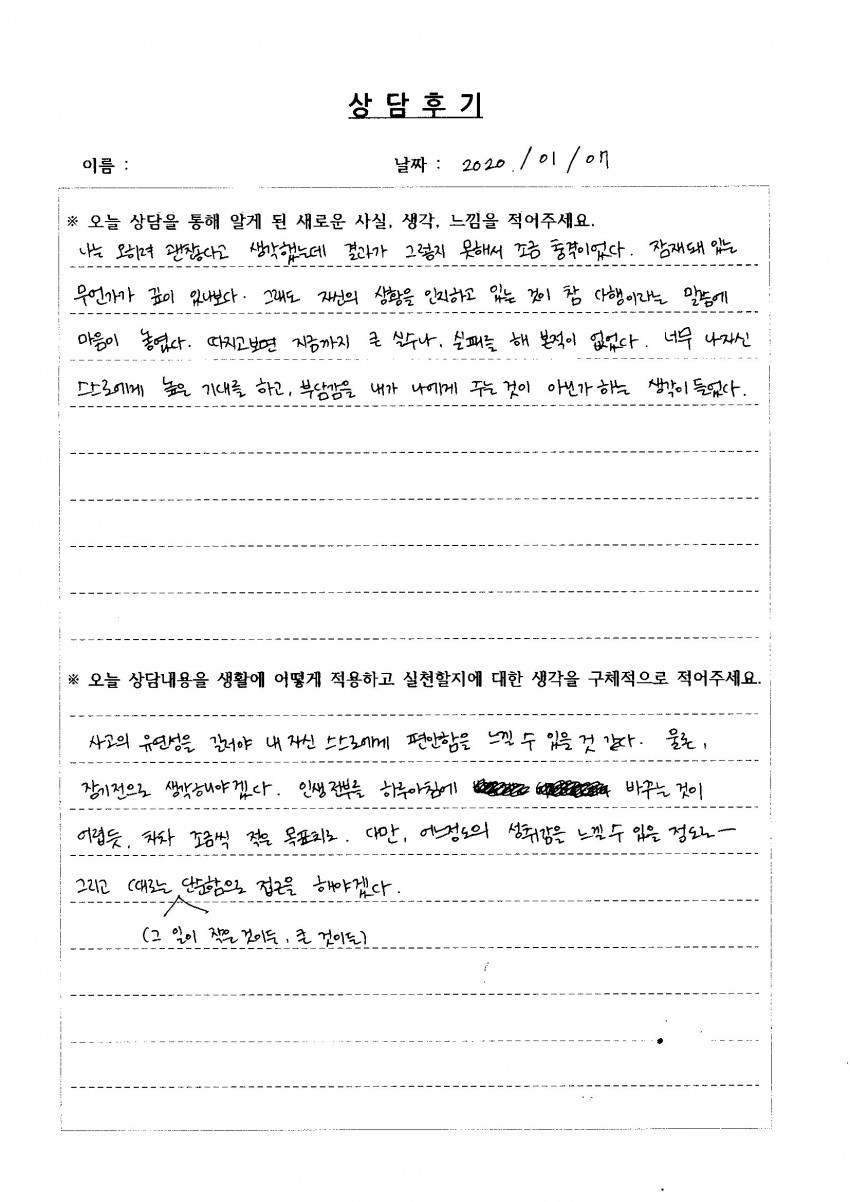 상담후기
이름 :
날짜 : 2020. / 01 / 07
※ 오늘 상담을 통해 알게 된 새로운 사실, 생각, 느낌을 적어주세요.
나는 오히려 괜찮다고 생각했는데 결과가 그렇지 못해서 조금 충격이었다. 잠재돼 있는
무언가가 깊이 있나보다. 그래도 자신의 상황을 인지하고 있는 것이 참 다행이라는 말씀에
마음이 놓였다. 따지고보면 지금까지 큰 실수나, 실패를 해 본적이 없었다. 너무 나자신
스스로에게 높은 기대를 하고, 부담감을 내가 나에게 주는 것이 아닌가 하는 생각이 들었다.
※ 오늘 상담내용을 생활에 어떻게 적용하고 실천할지에 대한 생각을 구체적으로 적어주세요.
사고의 유연성을 길러야 내 자신 스스로에게 편안함을 느낄 수 있을 것 같다. 물론,
장기전으로 생각해야겠다. 인생전부를 하루아침에 바꾸는 것이
어렵듯, 차차 조금씩 적은 목표치로. 다만, 어느정도의 성취감을 느낄 수 있을 정도로ㅡ
그리고 (때로는 단순함으로 접근을 해야겠다.
(그 일이 작은 것이든, 큰 것이든)